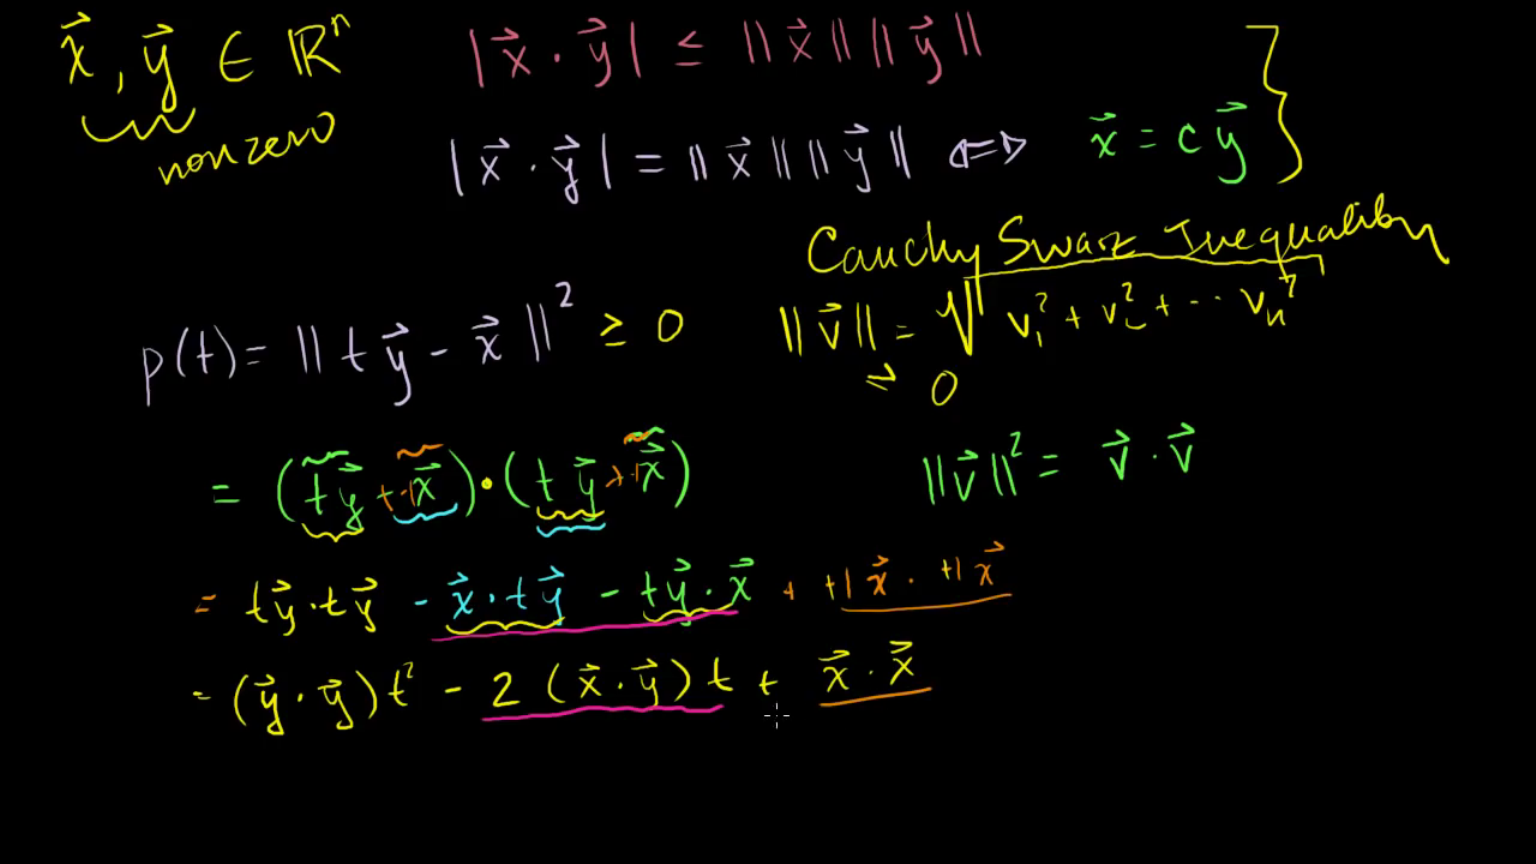 x⃗, y⃗ ∈ ℝⁿ
nonzero
|x⃗ · y⃗| ≤ ||x⃗|| ||y⃗||
|x⃗ · y⃗| = ||x⃗|| ||y⃗|| ⇔ x⃗ = c y⃗
Cauchy Swarz Inequality
p(t) = ||t y⃗ - x⃗||² ≥ 0
||v⃗|| = √(v₁² + v₂² + ... vₙ²)
≥ 0
= (t y⃗ + -1 x⃗) · (t y⃗ + -1 x⃗)
||v⃗||² = v⃗ · v⃗
= t y⃗ · t y⃗ - x⃗ · t y⃗ - t y⃗ · x⃗ + +1 x⃗ · +1 x⃗
= (y⃗ · y⃗) t² - 2 (x⃗ · y⃗) t + x⃗ · x⃗